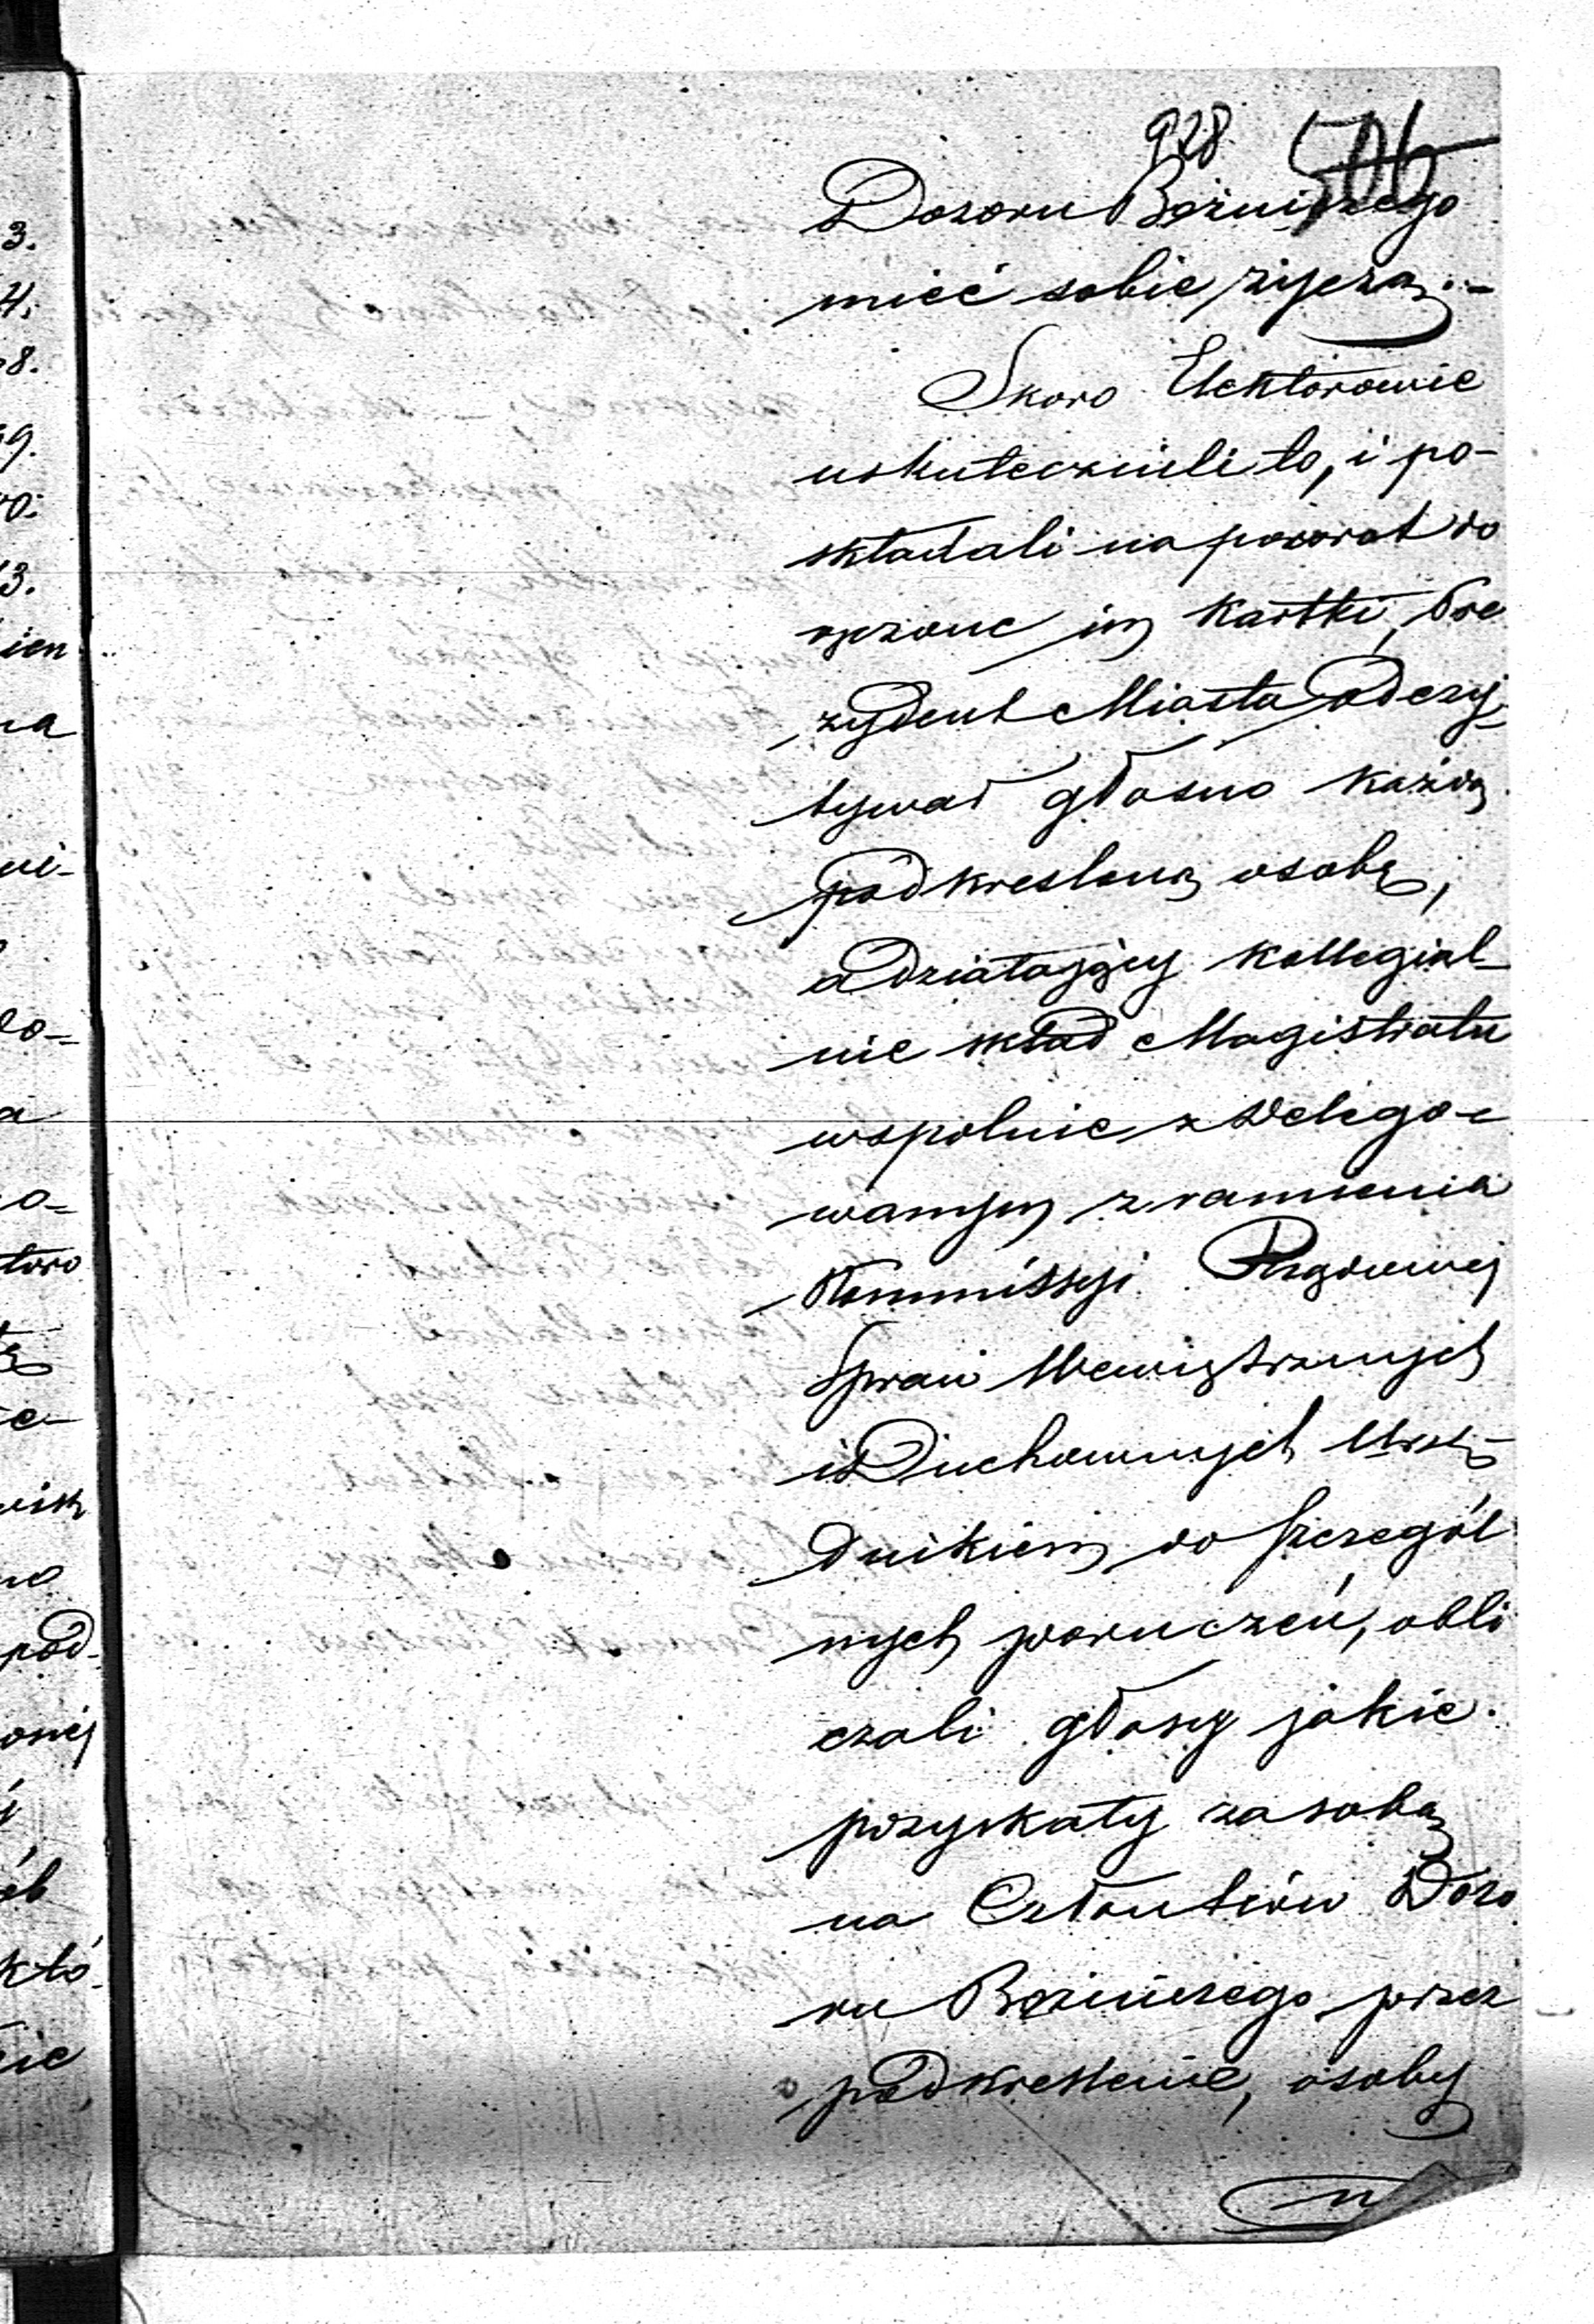 928 506
Dozoru Bożniczego
mieć sobie życzą.-
Skoro Elektorowie
uskutecznili to, i po-
składali na powrot do
ręczone im kartki, Pre
zydent Miasta odczy-
tywał głosno każdą
podkresloną osobę,
a działający kollegial-
nie skład Magistratu
wspolnie z delego-
wanym z ramienia
Kommissyi Rządowej
Spraw Wewnętrznych
i Duchownych Urzę-
dnikiem do szczegól
nych poruczeń, obli
czali głosy jakie
pozyskały za sobą
na Członków Dozo
ru Bożniczego przez
podkreslenie, osoby
3.
4.
8.
9.
0.
3.
ien
na
ni-
do-
a
o-
toro
ie-
no
pod-
onej
i
ób
któ-
nie